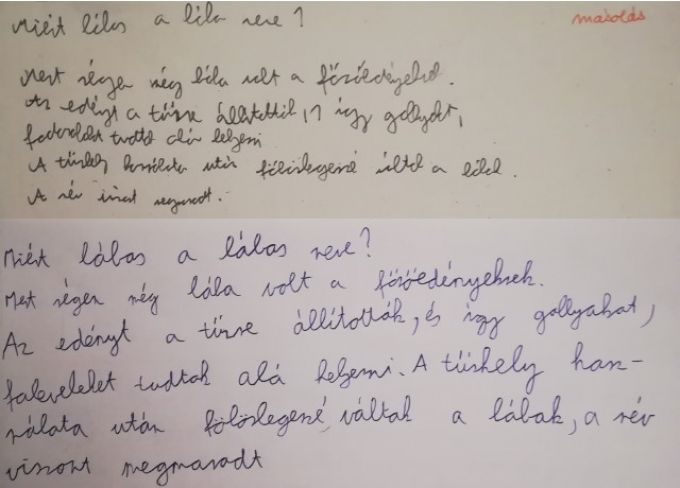 Miért lábas a lába neve?
masolás
Mert régen még lába volt a főzőedényeknek.
Az edényt a tűzre állították, így gallyakat,
tudtak alá helyezni
A tűzhely használata után fölöslegessé váltak a lábak.
A név megmaradt.
Miért lábas a lábas neve?
Mert régen még lába volt a főzőedényeknek.
Az edényt a tűzre állították, és így gallyakat,
faleveleket tudtak alá helyezni. A tűzhely hasz-
nálata után fölöslegessé váltak a lábak, a név
viszont megmaradt